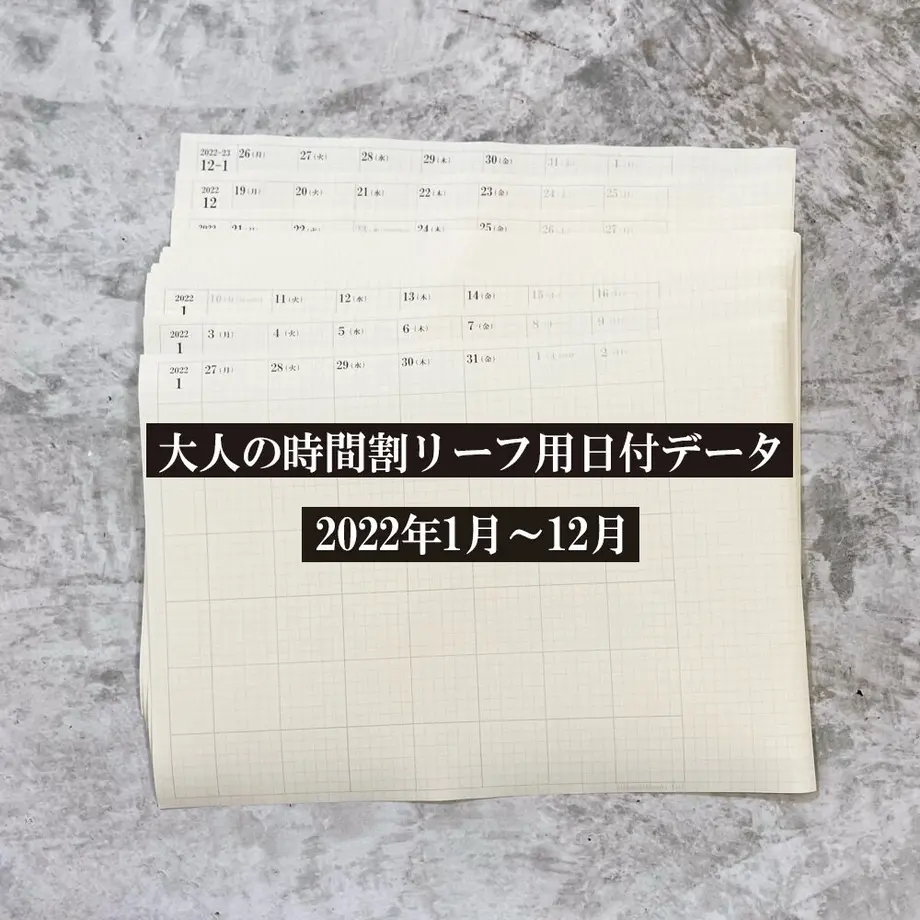 2022-23 26(月) 27(火) 28(水) 29(木) 30(金) 31 1
12-1
2022 19(月) 20(火) 21(水) 22(木) 23(金) 24 25
12
2022 21(月) 22(火) 23 24(木) 25(金) 26 27
2022 10 11(火) 12(水) 13(木) 14(金) 15 16
1
2022 3(月) 4(火) 5(水) 6(木) 7(金) 8 9
1
2022 27(月) 28(火) 29(水) 30(木) 31(金) 1 2
1
大人の時間割リーフ用日付データ
2022年1月～12月